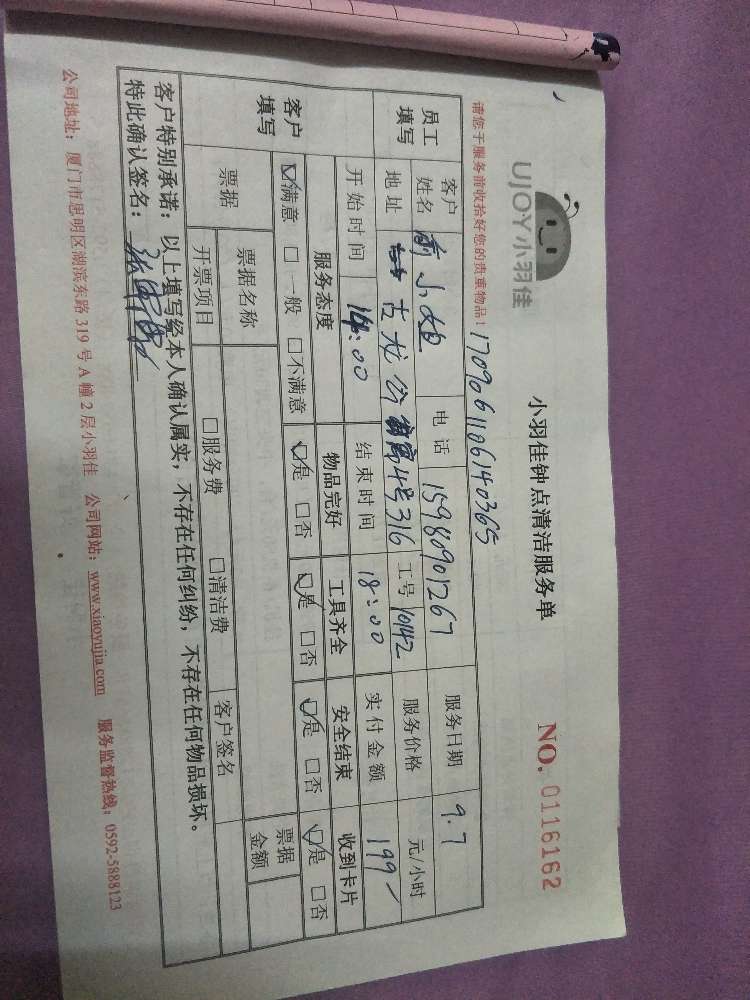 UJOY小羽佳
小羽佳钟点清洁服务单
NO. 0116162
请您于服务前收拾好您的贵重物品！ 1709061106140365
员工填写 客户姓名 小姐 电话 15980901267 服务日期 9.7
地址 古龙公寓4号316 工号 10142 服务价格 元/小时
开始时间 14:00 结束时间 18:00 实付金额 199
客户填写 服务态度 物品完好 工具齐全 安全结束 收到卡片
☑满意 □一般 □不满意 ☑是 □否 ☑是 □否 ☑是 □否 ☑是 □否
票据 票据名称 票据金额
开票项目 □服务费 □清洁费 客户签名
客户特别承诺：以上填写经本人确认属实，不存在任何纠纷，不存在任何物品损坏。
特此确认签名：
公司地址：厦门市思明区湖滨东路319号A幢2层小羽佳 公司网站：www.xiaoyujia.com 服务监督热线：0592-5888123